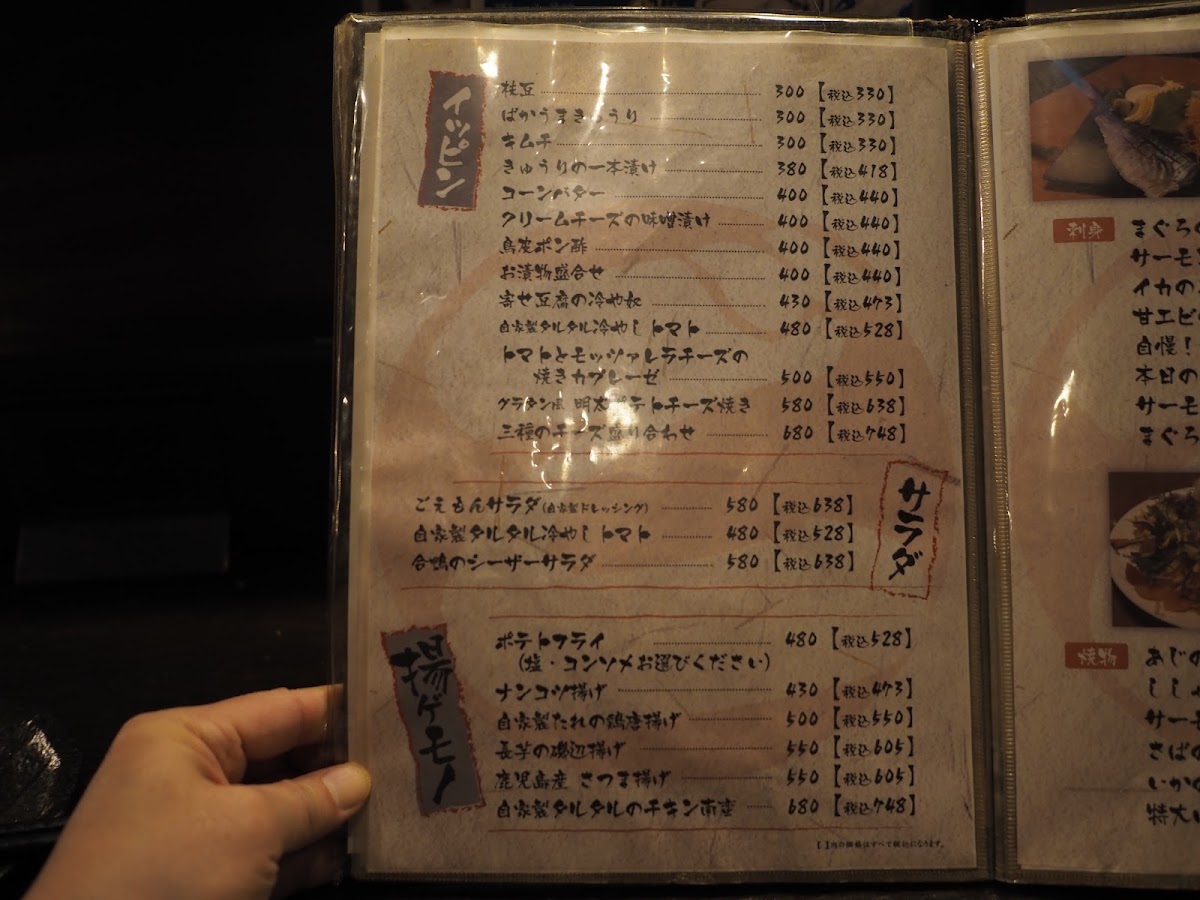 イッピン
枝豆 300【税込330】
ばかうまきゅうり 300【税込330】
キムチ 300【税込330】
きゅうりの一本漬け 380【税込418】
コーンバター 400【税込440】
クリームチーズの味噌漬け 400【税込440】
鳥皮ポン酢 400【税込440】
お漬物盛合せ 400【税込440】
寄せ豆腐の冷や奴 430【税込473】
自家製タルタル冷やしトマト 480【税込528】
トマトとモッツァレラチーズの
焼きカプレーゼ 500【税込550】
グラタン風 明太ポテトチーズ焼き 580【税込638】
三種のチーズ盛り合わせ 680【税込748】
サラダ
ごえもんサラダ(自家製ドレッシング) 580【税込638】
自家製タルタル冷やしトマト 480【税込528】
合鴨のシーザーサラダ 580【税込638】
揚ゲモノ
ポテトフライ 480【税込528】
(塩・コンソメお選びください)
ナンコツ揚げ 430【税込473】
自家製たれの鶏唐揚げ 500【税込550】
長芋の磯辺揚げ 550【税込605】
鹿児島産 さつま揚げ 550【税込605】
自家製タルタルのチキン南蛮 680【税込748】
【 】内の価格はすべて税込になります。
刺身
まぐろの
サーモン
イカの
甘エビ
自慢!
本日の
サーモ
まぐろ
焼物
あじの
ししゃ
サーモ
さばの
いかの
特大